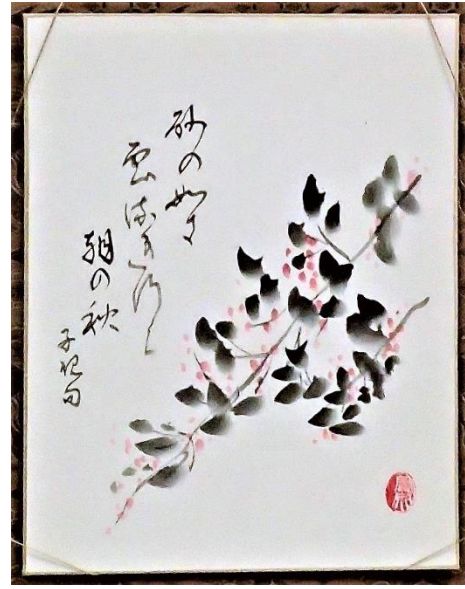 砂の如き
雲流れ行く
朝の秋
子規句